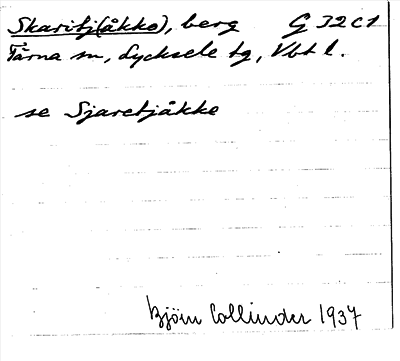 Skaritj(åkko), berg G 32 c 1
Tärna sn, Lycksele lg, Vbt l.
se Sjaretjåkke
Björn Collinder 1937